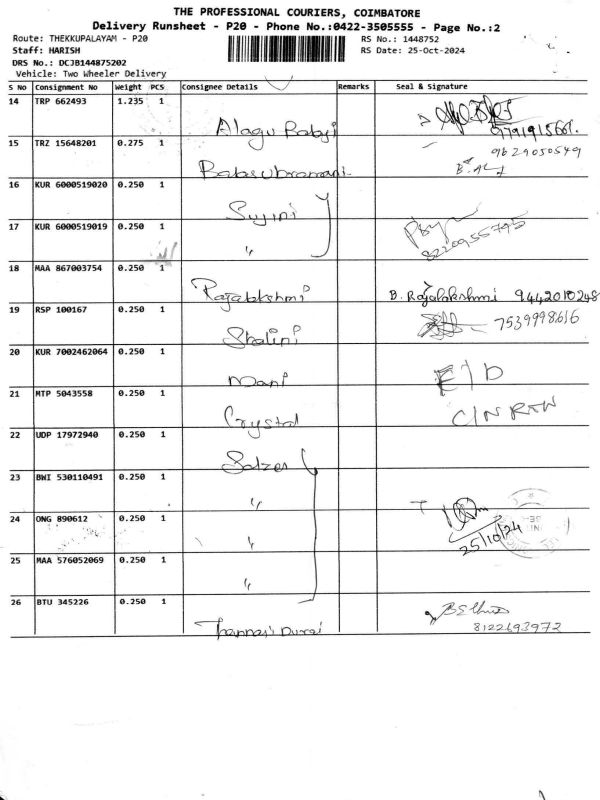 THE PROFESSIONAL COURIERS, COIMBATORE
Delivery Runsheet - P20 - Phone No.:0422-3505555 - Page No.:2
Route: THEKKUPALAYAM - P20 RS No.: 1448752
Staff: HARISH RS Date: 25-Oct-2024
DRS No.: DCJB144875202
Vehicle: Two Wheeler Delivery
S No Consignment No Weight PCS Consignee Details Remarks Seal & Signature
14 TRP 662493 1.235 1 Alagu Babji 9791915661.
15 TRZ 15648201 0.275 1 Balasubramani 9629050549
16 KUR 6000519020 0.250 1 Sujini
17 KUR 6000519019 0.250 1 " 8220955795
18 MAA 867003754 0.250 1 Rajalakshmi B. Rajalakshmi 9442010248
19 RSP 100167 0.250 1 Shalini 7539998616
20 KUR 7002462064 0.250 1 Mani
21 MTP 5043558 0.250 1 Crystal C/N RTN
22 UDP 17972940 0.250 1 Salzer
23 BWI 530110491 0.250 1 "
24 ONG 890612 0.250 1 " 25/10/24
25 MAA 576052069 0.250 1 "
26 BTU 345226 0.250 1 Thannasi Durai 8122693972